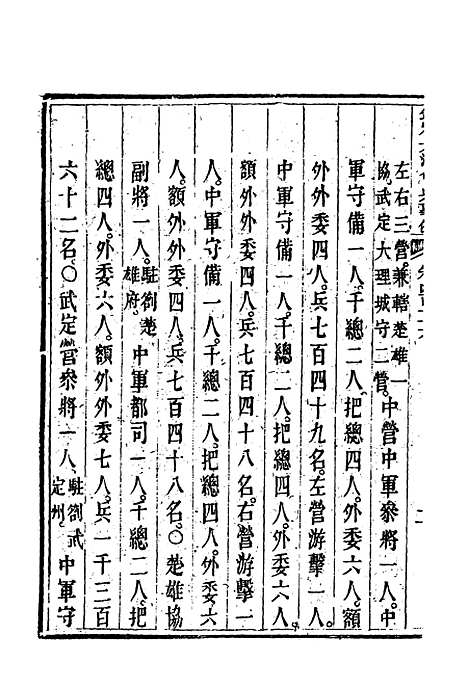 左右三營兼轄楚雄一協武定大理城守二營。中營中軍參將一人。中
軍守備一人。千總二人。把總四人。外委六人。額
外外委四人。兵七百四十九名。左營游擊一人。
中軍守備一人。千總二人。把總四人。外委六人。
額外外委四人。兵七百四十八名。右營游擊一
人。中軍守備一人。千總二人。把總四人。外委六
人。額外外委四人。兵七百四十八名。○楚雄協
副將一人。駐劄楚雄府。中軍都司一人。千總二人。把
總四人。外委六人。額外外委七人。兵一千三百
六十二名。○武定營參將一人。駐劄武定州。中軍守